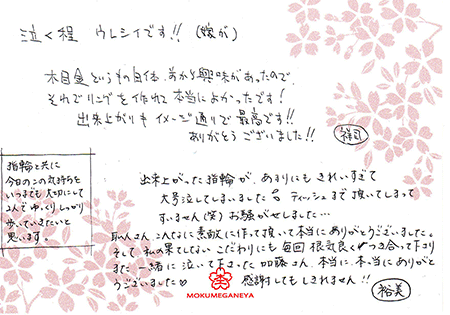 泣く程 ウレシイです!! (嫁が)
木目金というもの自体、前から興味があったので、
それでリングを作れて本当によかったです!
出来上がりもイメージ通りで最高です!!
ありがとうございました!!
指輪と共に
今日のこの気持ちを
いつまでも大切にして
2人でゆっくりしっかり
歩いていきたいと
思います。
出来上がった指輪が、あまりにもきれいすぎて
大号泣してしまいました ティッシュまで頂いてしまって
すいません(笑) お騒がせしました…
さん こんなに素敵に作って頂いて本当にありがとうございました。
そして 私の果てしないこだわりにも毎回根気良くつき合って下さり
また一緒に泣いて下さった加藤さん、本当に、本当にありがと
うございました♡ 感謝してもしきれません!!
裕美
MOKUMEGANEYA